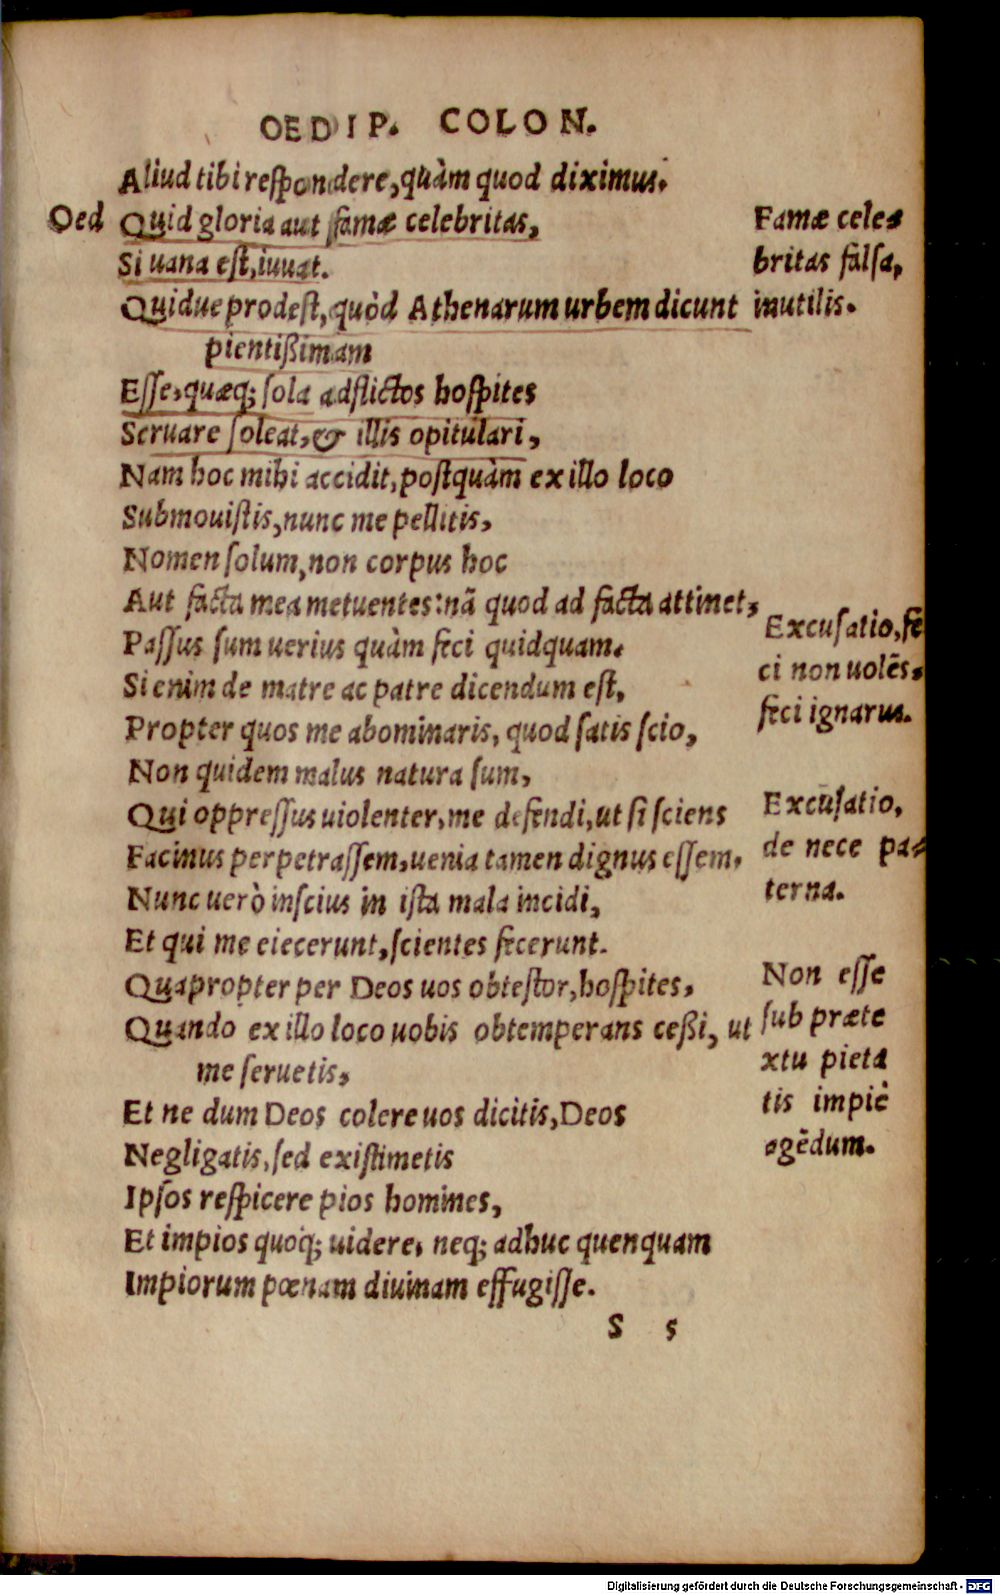 OEDIP. COLON.
Aliud tibi respondere, quàm quod diximus.
Oed Quid gloria aut famæ celebritas,
Si uana est, iuuat.
Quidue prodest, quòd Athenarum urbem dicunt
pientißimam
Esse, quæq; sola adflictos hospites
Seruare soleat, & illis opitulari,
Nam hoc mihi accidit, postquàm ex illo loco
Submouistis, nunc me pellitis,
Nomen solum, non corpus hoc
Aut facta mea metuentes: nã quod ad facta attinet,
Passus sum uerius quàm feci quidquam.
Si enim de matre ac patre dicendum est,
Propter quos me abominaris, quod satis scio,
Non quidem malus natura sum,
Qui oppressus uiolenter, me defendi, ut si sciens
Facinus perpetrassem, uenia tamen dignus essem,
Nunc uerò inscius in ista mala incidi,
Et qui me eiecerunt, scientes fecerunt.
Quapropter per Deos uos obtestor, hospites,
Quando ex illo loco uobis obtemperans ceßi, ut
me seruetis,
Et ne dum Deos colere uos dicitis, Deos
Negligatis, sed existimetis
Ipsos respicere pios homines,
Et impios quoq; uidere, neq; adhuc quenquam
Impiorum pœnam diuinam effugisse.
S 5
Famæ cele=
britas falsa,
inutilis.
Excusatio, fe
ci non uolẽs,
feci ignarus.
Excusatio,
de nece pa=
terna.
Non esse
sub præte
xtu pieta
tis impiè
agẽdum.
Digitalisierung gefördert durch die Deutsche Forschungsgemeinschaft - DFG